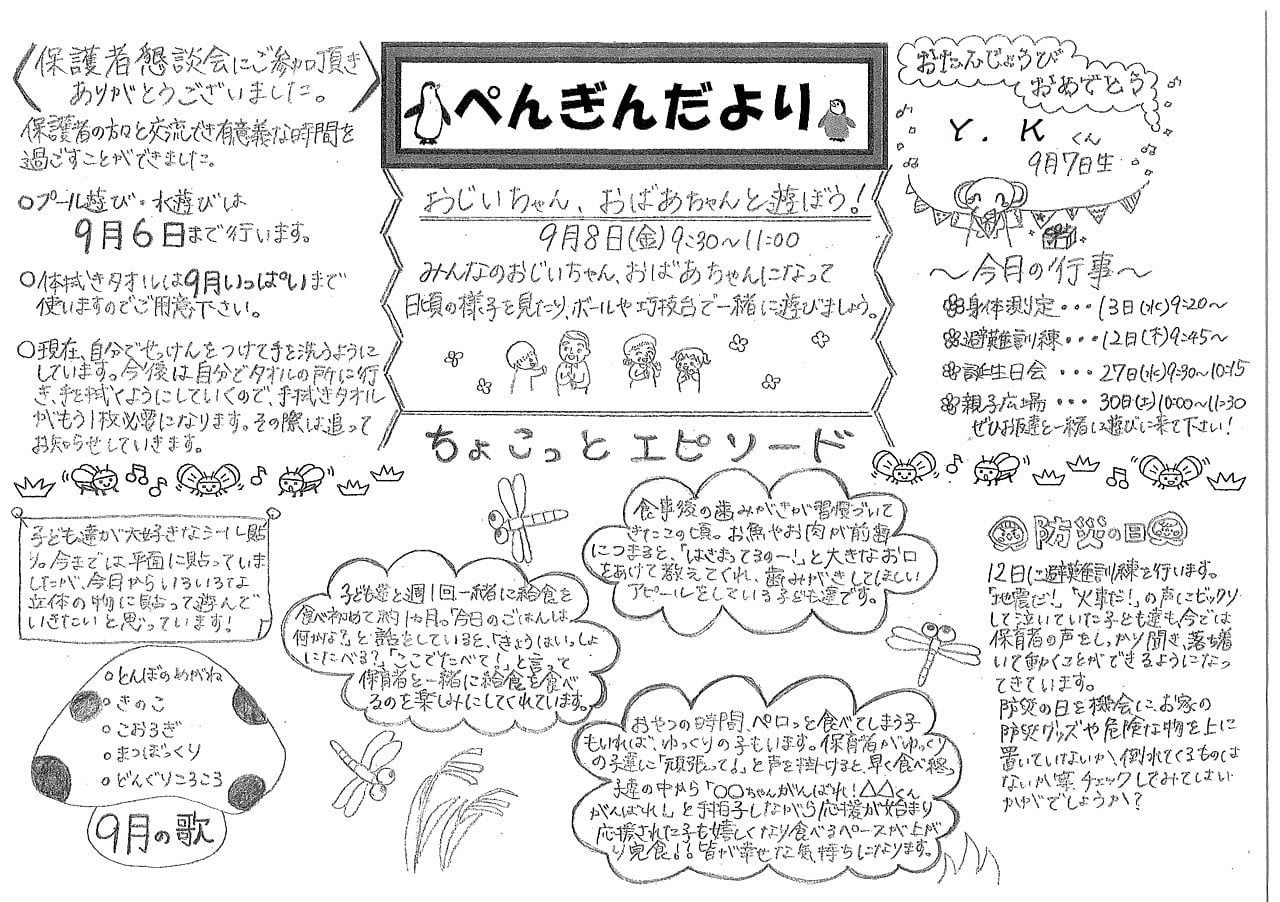 保護者懇談会にご参加頂き
ありがとうございました。
保護者の方々と交流でき有意義な時間を
過ごすことができました。
○プール遊び・水遊びは
9月6日まで行います。
○体拭きタオルは9月いっぱいまで
使いますのでご用意下さい。
○現在、自分でせっけんをつけて手を洗うように
しています。今後は自分でタオルの所に行
き、手を拭くようにしていくので、手拭きタオル
がもう1枚必要になります。その際は追って
お知らせしていきます。
ぺんぎんだより
おじいちゃん、おばあちゃんと遊ぼう!
9月8日(金)9:30~11:00
みんなのおじいちゃん、おばあちゃんになって
日頃の様子を見たり、ボールや巧技台で一緒に遊びましょう。
おたんじょうび
おめでとう
Y. Kくん
9月7日生
~今月の行事~
身体測定・・・13日(水)9:20~
避難訓練・・・12日(木)9:45~
誕生日会・・・27日(水)9:30~10:15
親子広場・・・30日(土)10:00~11:30
ぜひお友達と一緒に遊びに来て下さい!
ちょこっとエピソード
子ども達が大好きなシール貼
り。今までは平面に貼っていま
したが、今月からいろいろな
立体の物に貼って遊んで
いきたいと思っています!
○とんぼのめがね
○きのこ
○こおろぎ
○まつぼっくり
○どんぐりころころ
9月の歌
子ども達と週1回一緒に給食を
食べ初めて約1ヵ月。「今日のごはんは
何かな?」と話をしていると、「きょうはいっしょ
にたべる?」「ここでたべて!」と言って
保育者と一緒に給食を食べ
るのを楽しみにしてくれています。
食事後の歯みがきが習慣づいて
きたこの頃。お魚やお肉が前歯
につまると、「はさまってるのー!」と大きなお口
をあけて教えてくれ、歯みがきしてほしい
アピールをしている子ども達です。
おやつの時間、ペロっと食べてしまう子
もいれば、ゆっくりの子もいます。保育者がゆっくり
の子達に「頑張って!」と声を掛けると、早く食べ終
子達の中から「○○ちゃんがんばれ!△△くん
がんばれ!」と手拍子しながら応援が始まり
応援された子も嬉しくなり食べるペースが上が
り完食!!皆が幸せな気持ちになります。
防災の日
12日に避難訓練を行います。
「地震だ!」「火事だ!」の声にビックリ
して泣いていた子ども達も今では
保育者の声をしっかり聞き、落ち着
いて動くことができるようになっ
てきています。
防災の日を機会に、お家の
防災グッズや危険な物を上に
置いていないか、倒れてくるものは
ないか等、チェックしてみてはい
かがでしょうか?